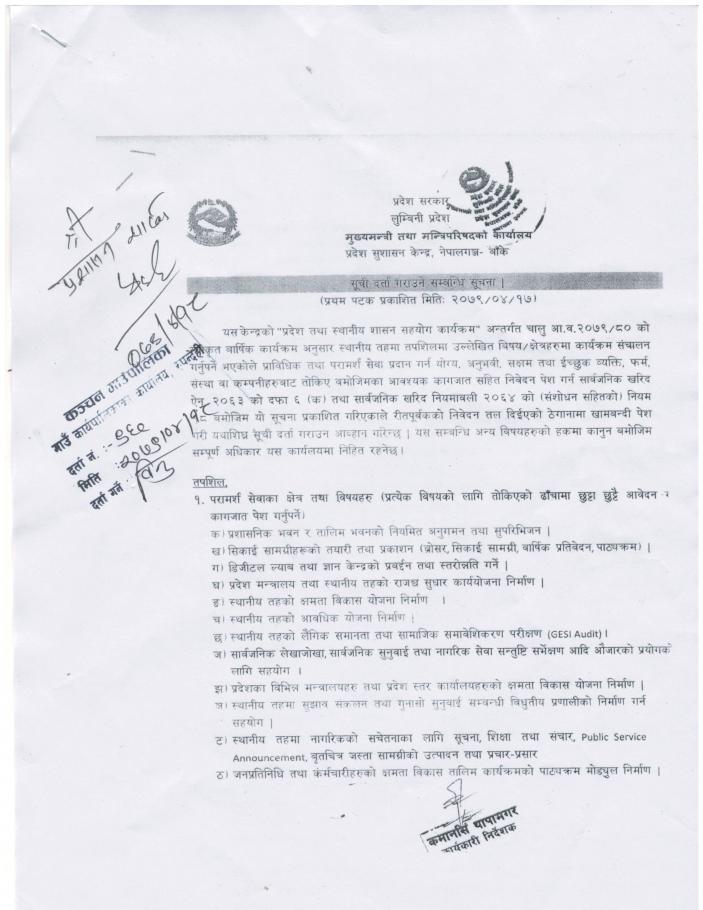 प्रदेश सरकार
लुम्बिनी प्रदेश
मुख्यमन्त्री तथा मन्त्रिपरिषदको कार्यालय
प्रदेश सुशासन केन्द्र, नेपालगञ्ज- बाँके
सूची दर्ता गराउने सम्बन्धि सूचना |
(प्रथम पटक प्रकाशित मितिः २०७९/०४/१७)
यस केन्द्रको "प्रदेश तथा स्थानीय शासन सहयोग कार्यक्रम" अन्तर्गत चालु आ.व.२०७९/८० को
स्वीकृत वार्षिक कार्यक्रम अनुसार स्थानीय तहमा तपशिलमा उल्लेखित विषय/क्षेत्रहरुमा कार्यक्रम संचालन
गर्नुपर्ने भएकोले प्राविधिक तथा परामर्श सेवा प्रदान गर्न योग्य, अनुभवी, सक्षम तथा ईच्छुक व्यक्ति, फर्म,
संस्था वा कम्पनीहरुबाट तोकिए बमोजिमका आवश्यक कागजात सहित निवेदन पेश गर्न सार्वजनिक खरिद
ऐन, २०६३ को दफा ६ (क) तथा सार्वजनिक खरिद नियमावली २०६४ को (संशोधन सहितको) नियम
१८ बमोजिम यो सूचना प्रकाशित गरिएकाले रीतपूर्वकको निवेदन तल दिईएको ठेगानामा खामबन्दी पेश
गरी यथाशिघ्र सूची दर्ता गराउन आव्हान गरिन्छ | यस सम्बन्धि अन्य विषयहरुको हकमा कानुन बमोजिम
सम्पूर्ण अधिकार यस कार्यालयमा निहित रहनेछ।
कञ्चन गाउँपालिका
गाउँ कार्यपालिकाको कार्यालय, रुपन्देही
दर्ता नं. :- ९६०
मिति :- २०७९/०४/१८
दर्ता गर्ने
तपशिल,
१. परामर्श सेवाका क्षेत्र तथा विषयहरु (प्रत्येक विषयको लागि तोकिएको ढाँचामा छुट्टा छुट्टै आवेदन र
कागजात पेश गर्नुपर्ने)
क) प्रशासनिक भवन र तालिम भवनको नियमित अनुगमन तथा सुपरिभिजन |
ख) सिकाई सामग्रीहरूको तयारी तथा प्रकाशन (ब्रोसर, सिकाई सामग्री, वार्षिक प्रतिवेदन, पाठ्यक्रम) |
ग) डिजीटल ल्याब तथा ज्ञान केन्द्रको प्रवर्द्दन तथा स्तरोन्नति गर्ने |
घ) प्रदेश मन्त्रालय तथा स्थानीय तहको राजश्व सुधार कार्ययोजना निर्माण |
ङ) स्थानीय तहको क्षमता विकास योजना निर्माण ।
च) स्थानीय तहको आवधिक योजना निर्माण |
छ) स्थानीय तहको लैंगिक समानता तथा सामाजिक समावेशिकरण परीक्षण (GESI Audit) ।
ज) सार्वजनिक लेखाजोखा, सार्वजनिक सुनुवाई तथा नागरिक सेवा सन्तुष्टि सर्भेक्षण आदि औजारको प्रयोगको
लागि सहयोग ।
झ) प्रदेशका विभिन्न मन्त्रालयहरु तथा प्रदेश स्तर कार्यालयहरुको क्षमता विकास योजना निर्माण |
ञ) स्थानीय तहमा सुझाव संकलन तथा गुनासो सुनुवाई सम्वन्धी विधुतीय प्रणालीको निर्माण गर्न
सहयोग |
ट) स्थानीय तहमा नागरिकको सचेतनाका लागि सूचना, शिक्षा तथा संचार, Public Service
Announcement, बृतचित्र जस्ता सामग्रीको उत्पादन तथा प्रचार-प्रसार
ठ) जनप्रतिनिधि तथा कर्मचारीहरुको क्षमता विकास तालिम कार्यक्रमको पाठ्यक्रम मोड्युल निर्माण |
कमानसिं थापामगर
कार्यकारी निर्देशक